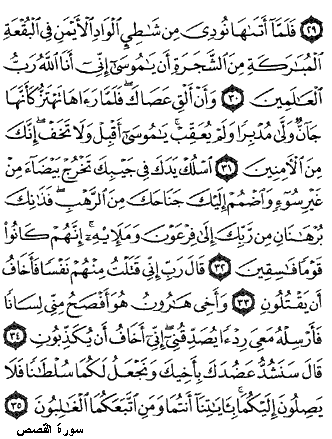 ٢٩ فَلَمَّآ أَتَىٰهَا نُودِىَ مِن شَٰطِئِ ٱلْوَادِ ٱلْأَيْمَنِ فِى ٱلْبُقْعَةِ
ٱلْمُبَٰرَكَةِ مِنَ ٱلشَّجَرَةِ أَن يَٰمُوسَىٰٓ إِنِّىٓ أَنَا ٱللَّهُ رَبُّ
ٱلْعَٰلَمِينَ ٣٠ وَأَنْ أَلْقِ عَصَاكَ ۖ فَلَمَّا رَءَاهَا تَهْتَزُّ كَأَنَّهَا
جَآنٌّ وَلَّىٰ مُدْبِرًا وَلَمْ يُعَقِّبْ ۚ يَٰمُوسَىٰٓ أَقْبِلْ وَلَا تَخَفْ ۖ إِنَّكَ
مِنَ ٱلْءَامِنِينَ ٣١ ٱسْلُكْ يَدَكَ فِى جَيْبِكَ تَخْرُجْ بَيْضَآءَ مِنْ
غَيْرِ سُوٓءٍ وَٱضْمُمْ إِلَيْكَ جَنَاحَكَ مِنَ ٱلرَّهْبِ ۖ فَذَٰنِكَ
بُرْهَٰنَانِ مِن رَّبِّكَ إِلَىٰ فِرْعَوْنَ وَمَلَإِي۟هِۦٓ ۚ إِنَّهُمْ كَانُوا۟
قَوْمًا فَٰسِقِينَ ٣٢ قَالَ رَبِّ إِنِّى قَتَلْتُ مِنْهُمْ نَفْسًا فَأَخَافُ
أَن يَقْتُلُونِ ٣٣ وَأَخِى هَٰرُونُ هُوَ أَفْصَحُ مِنِّى لِسَانًا
فَأَرْسِلْهُ مَعِىَ رِدْءًا يُصَدِّقُنِىٓ ۖ إِنِّىٓ أَخَافُ أَن يُكَذِّبُونِ ٣٤
قَالَ سَنَشُدُّ عَضُدَكَ بِأَخِيكَ وَنَجْعَلُ لَكُمَا سُلْطَٰنًا فَلَا
يَصِلُونَ إِلَيْكُمَا ۚ بِـَٔايَٰتِنَآ أَنتُمَا وَمَنِ ٱتَّبَعَكُمَا ٱلْغَٰلِبُونَ ٣٥
سورة القصص